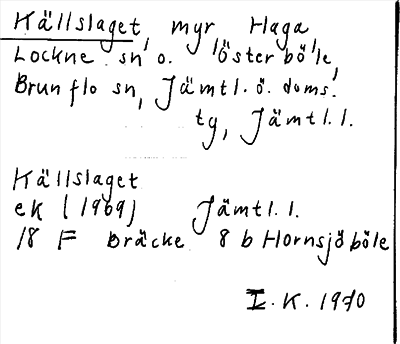 Källslaget, myr, Haga,
Lockne sn o. Österböle,
Brunflo sn, Jämtl. ö. doms.
tg, Jämtl. l.
Källslaget
ek (1969) Jämtl. l.
18 F Bräcke 8 b Hornsjöböle
I. K. 1970